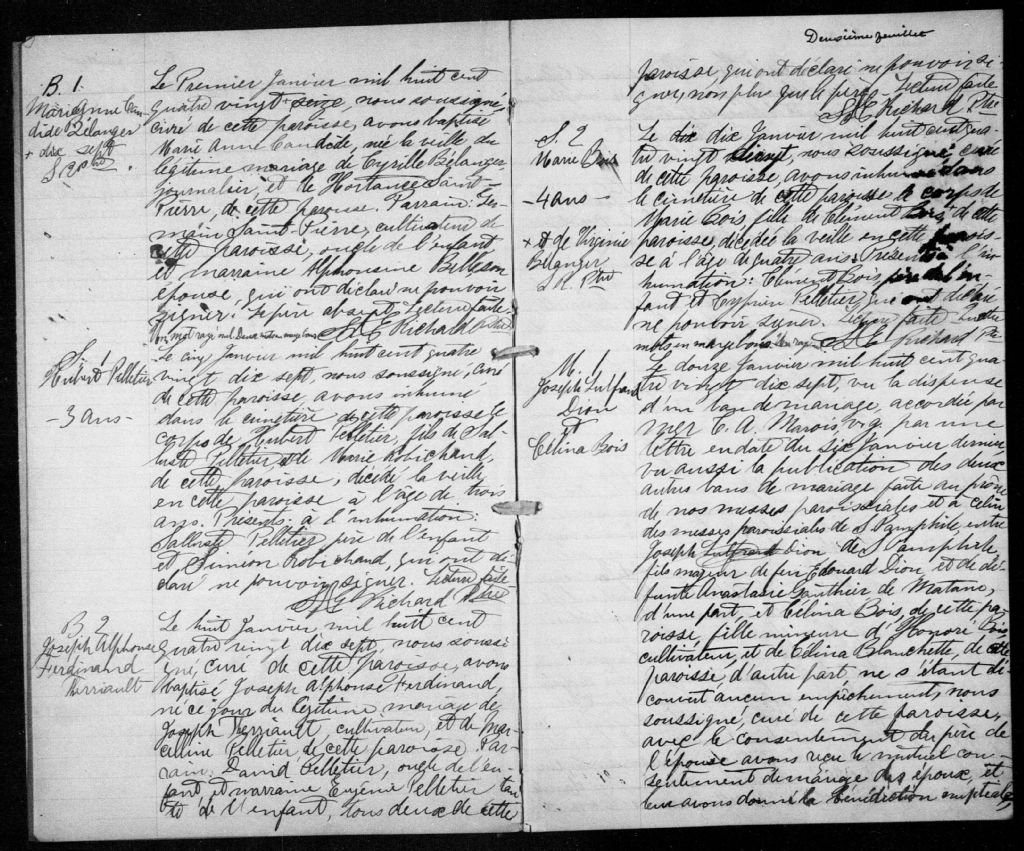 B. 1.
Marie Anne Can-
dide Bélanger
+ dix sept
Le Premier Janvier mil huit cent
quatre vingt seize, nous soussigné,
curé de cette paroisse, avons baptisé
Marie Anne Candide, née la veille du
légitime mariage de Cyrille Bélanger,
journalier, et de Hortance Saint-
Pierre, de cette paroisse. Parrain: Ger-
main Saint-Pierre, cultivateur de
cette paroisse, oncle de l'enfant
et marraine Alphonsine
épouse, qui ont déclaré ne pouvoir
signer. Le père absent. Lecture faite.
Richard Ptre
S. 1
Hubert Pelletier
- 3 ans -
Le cinq Janvier mil huit cent quatre
vingt dix sept, nous soussigné, curé
de cette paroisse, avons inhumé
dans le cimetière de cette paroisse le
corps de Hubert Pelletier, fils de Sal-
luste Pelletier et de Marie Robichaud,
de cette paroisse, décédé la veille
en cette paroisse à l'âge de trois
ans. Présents à l'inhumation:
Salluste Pelletier père de l'enfant
et Siméon Robichaud, qui ont dé-
claré ne pouvoir signer. Lecture faite
Richard Ptre
B 2
Joseph Alphonse
Ferdinand
Therriault
Le huit Janvier mil huit cent
quatre vingt dix sept, nous soussi-
gné, curé de cette paroisse, avons
baptisé Joseph Alphonse Ferdinand,
né ce jour du légitime mariage de
Joseph Therriault, cultivateur, et de Mar-
celline Pelletier, de cette paroisse. Par-
rain, David Pelletier, oncle de l'en-
fant et marraine Eugénie Pelletier tan-
te de l'enfant, tous deux de cette
Deuxième feuillet
paroisse, qui ont déclaré ne pouvoir si-
gner, non plus que le père. Lecture faite
Richard Ptre
S. 2
Marie Bois
- 4 ans -
+ et de Virginie
Bélanger
Ptre
Le dix Janvier mil huit cent qua-
tre vingt, nous soussigné, curé
de cette paroisse, avons inhumé dans
le cimetière de cette paroisse le corps de
Marie Bois, fille de Clément Bois, + de cette
paroisse, décédée la veille en cette parois-
se à l'âge de quatre ans. Présents à l'in-
humation: Clément Bois, père de l'en-
fant et Cyprien Pelletier, qui ont déclaré
ne pouvoir signer. Lecture faite. Quatre
mots en marge bons
Richard Ptre
M. 1
Joseph
Dion
et
Célina Bois
Le douze Janvier mil huit cent qua-
tre vingt dix sept, vu la dispense
d'un ban de mariage, accordée par
Mgr C. A. Marois, v.g. par une
lettre en date du six Janvier dernier,
vu aussi la publication des deux
autres bans de mariage faite au prône
de nos messes paroissiales et à celui
des messes paroissiales de S. Pamphile entre
Joseph Dion de S. Pamphile,
fils majeur de feu Edouard Dion et de dé-
funte Anastasie Gauthier de Matane,
d'une part, et Célina Bois, de cette pa-
roisse, fille mineure d'Honoré Bois,
cultivateur, et de Célina Blanchette, de cette
paroisse d'autre part, ne s'étant dé-
couvert aucun empêchement, nous
soussigné, curé de cette paroisse,
avec le consentement du père de
l'épouse avons reçu le mutuel con-
sentement de mariage des époux, et
leur avons donné la bénédiction nuptiale,